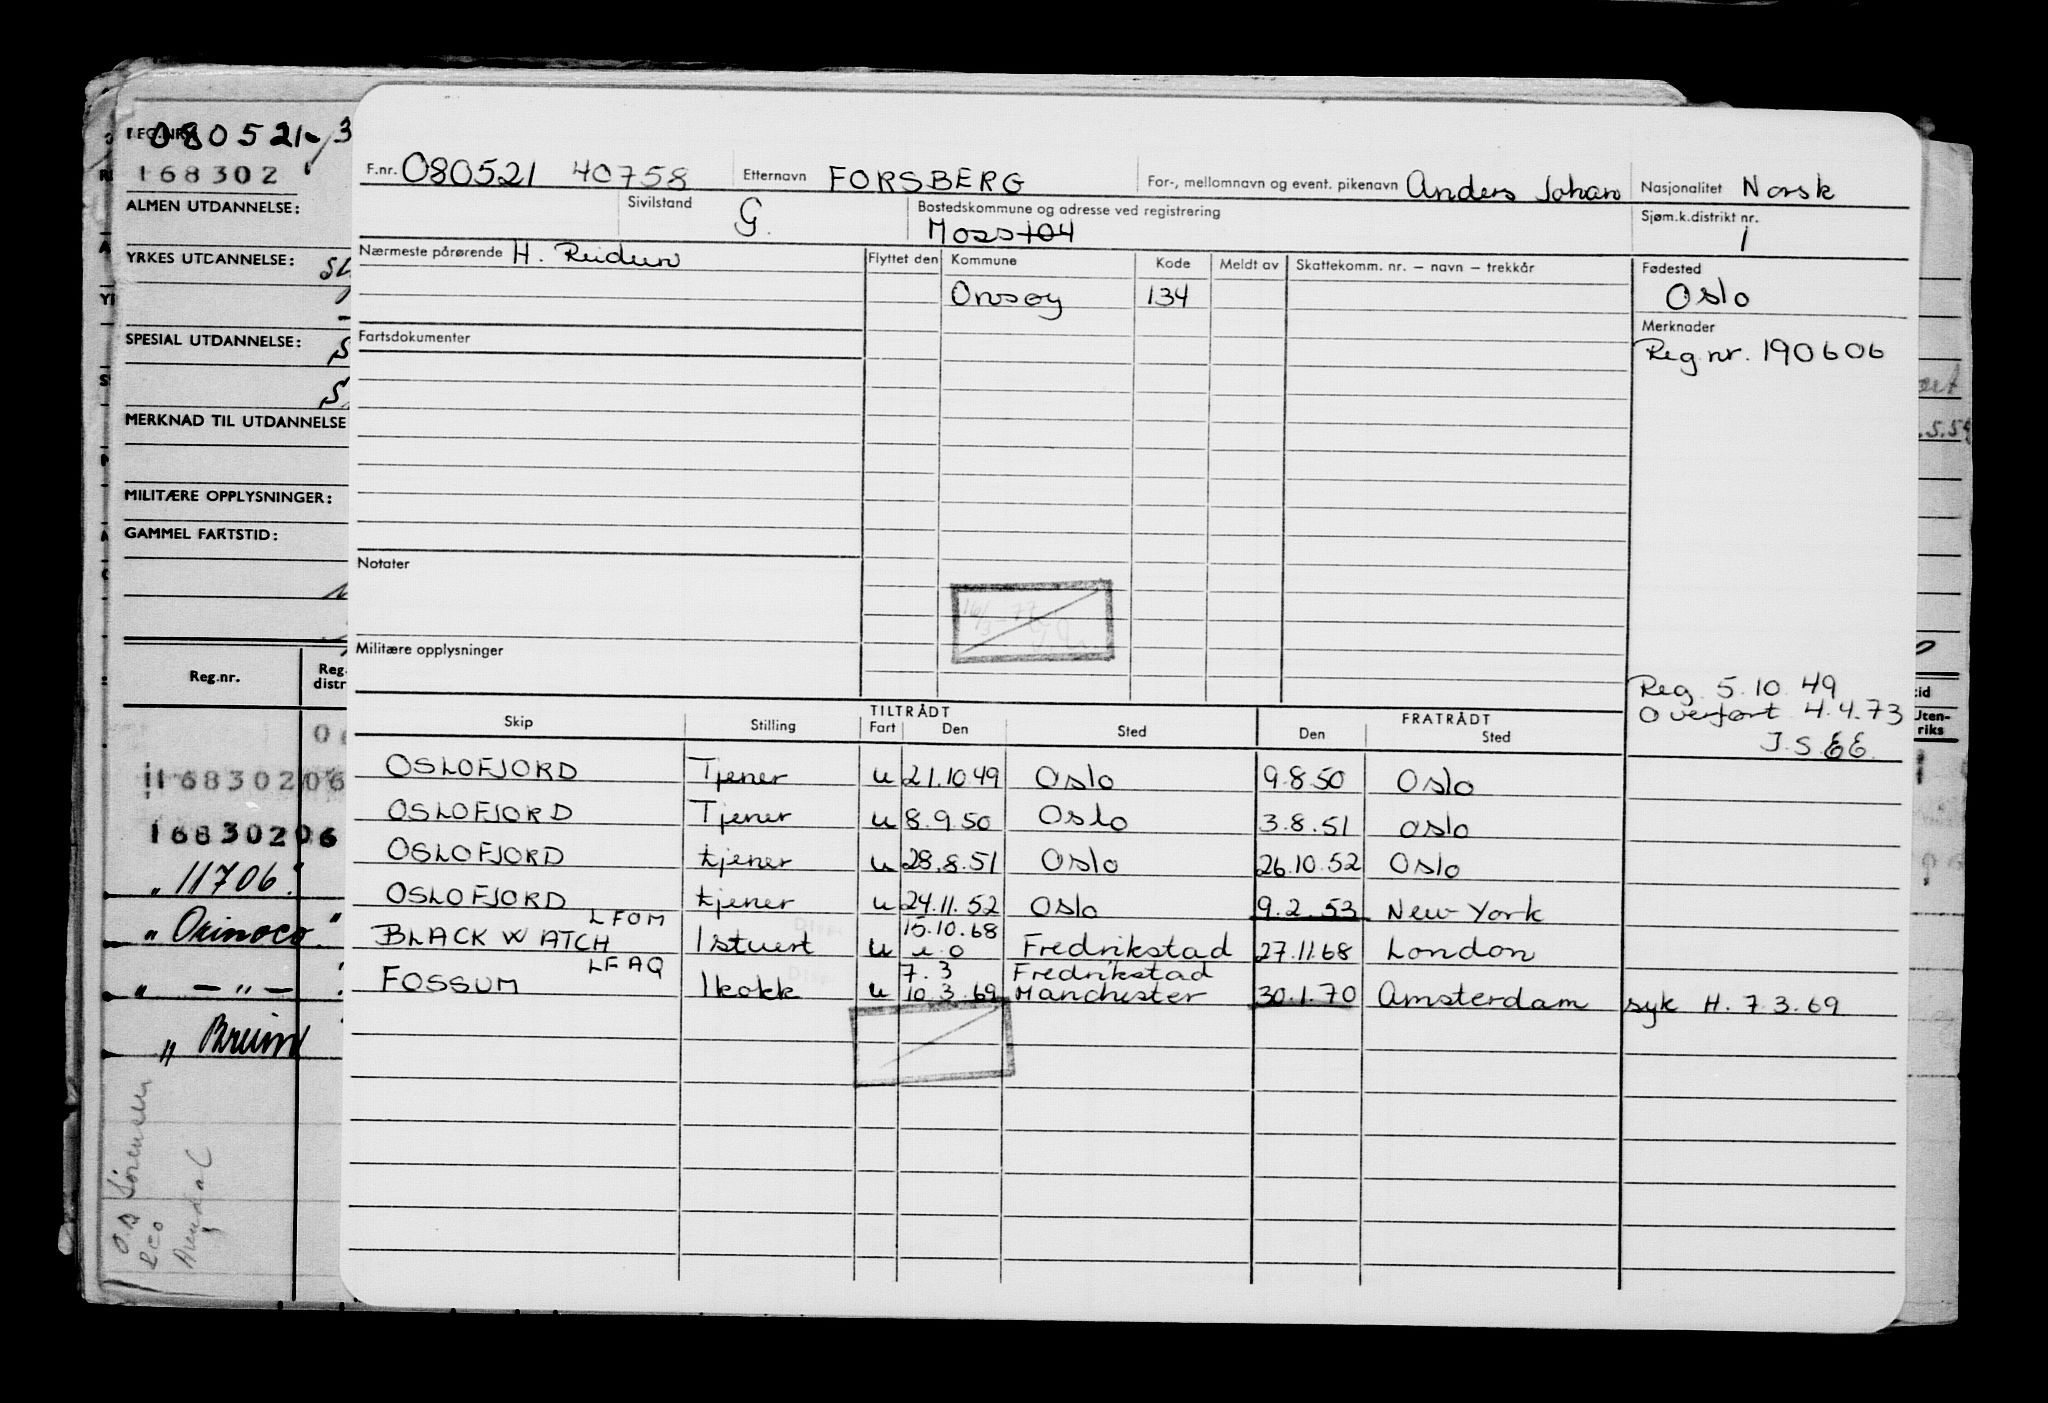 F.nr. 080521 40758 Etternavn FORSBERG For-, mellomnavn og event. pikenavn Anders Johan Nasjonalitet Norsk
Sivilstand G. Bostedskommune og adresse ved registrering Moss 104 Sjøm.k.distrikt nr. 1
Nærmeste pårørende H. Reidun Flyttet den Kommune Kode Meldt av Skattekomm. nr. – navn – trekkår Fødested
Onsøy 134 Oslo
Fartsdokumenter Merknader
Reg.nr. 190606
Notater
16/3-77
Militære opplysninger
Reg. 5.10.49
Overført 4.4.73
TILTRÅDT FRATRÅDT
Skip Stilling Fart Den Sted Den Sted
OSLOFJORD Tjener u 21.10.49 Oslo 9.8.50 Oslo
OSLOFJORD Tjener u 8.9.50 Oslo 3.8.51 Oslo
OSLOFJORD tjener u 28.8.51 Oslo 26.10.52 Oslo
OSLOFJORD tjener u 24.11.52 Oslo 9.2.53 New York
LFOM 15.10.68
BLACK WATCH 1stuert u u.o Fredrikstad 27.11.68 London
LFAQ 7.3 Fredrikstad
FOSSUM 1kokk u 10.3.69 Manchester 30.1.70 Amsterdam syk H. 7.3.69
REG.NR. 080521
168302
ALMEN UTDANNELSE:
YRKES UTDANNELSE:
SPESIAL UTDANNELSE:
MERKNAD TIL UTDANNELSE
MILITÆRE OPPLYSNINGER:
GAMMEL FARTSTID:
Reg.nr. Reg. distr
16830206
16830206
" 11706 "
" Orinoco "
" — " —
" Breim
O.B Sörensen
&Co
Arendal